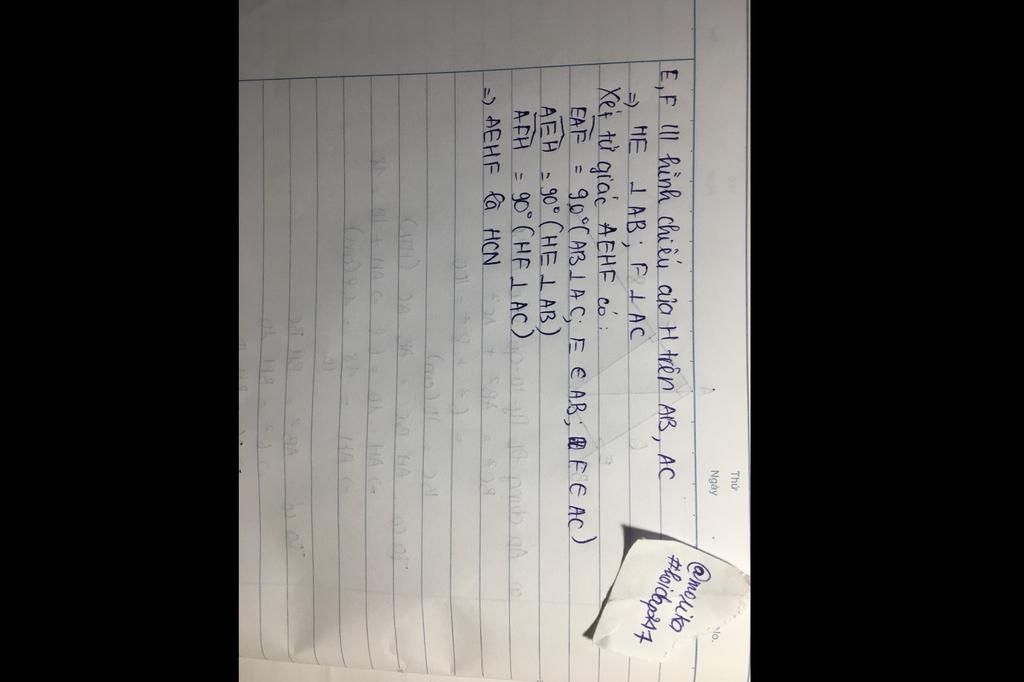 Thứ
Ngày
No.
E, F lll hình chiếu của H trên AB, AC
=> HE ⊥ AB; F ⊥ AC
Xét tứ giác AEHF có:
EAF = 90° (AB ⊥ AC; E ∈ AB; F ∈ AC)
AEH = 90° (HE ⊥ AB)
AFH = 90° (HF ⊥ AC)
=> AEHF là HCN
#hoidap247